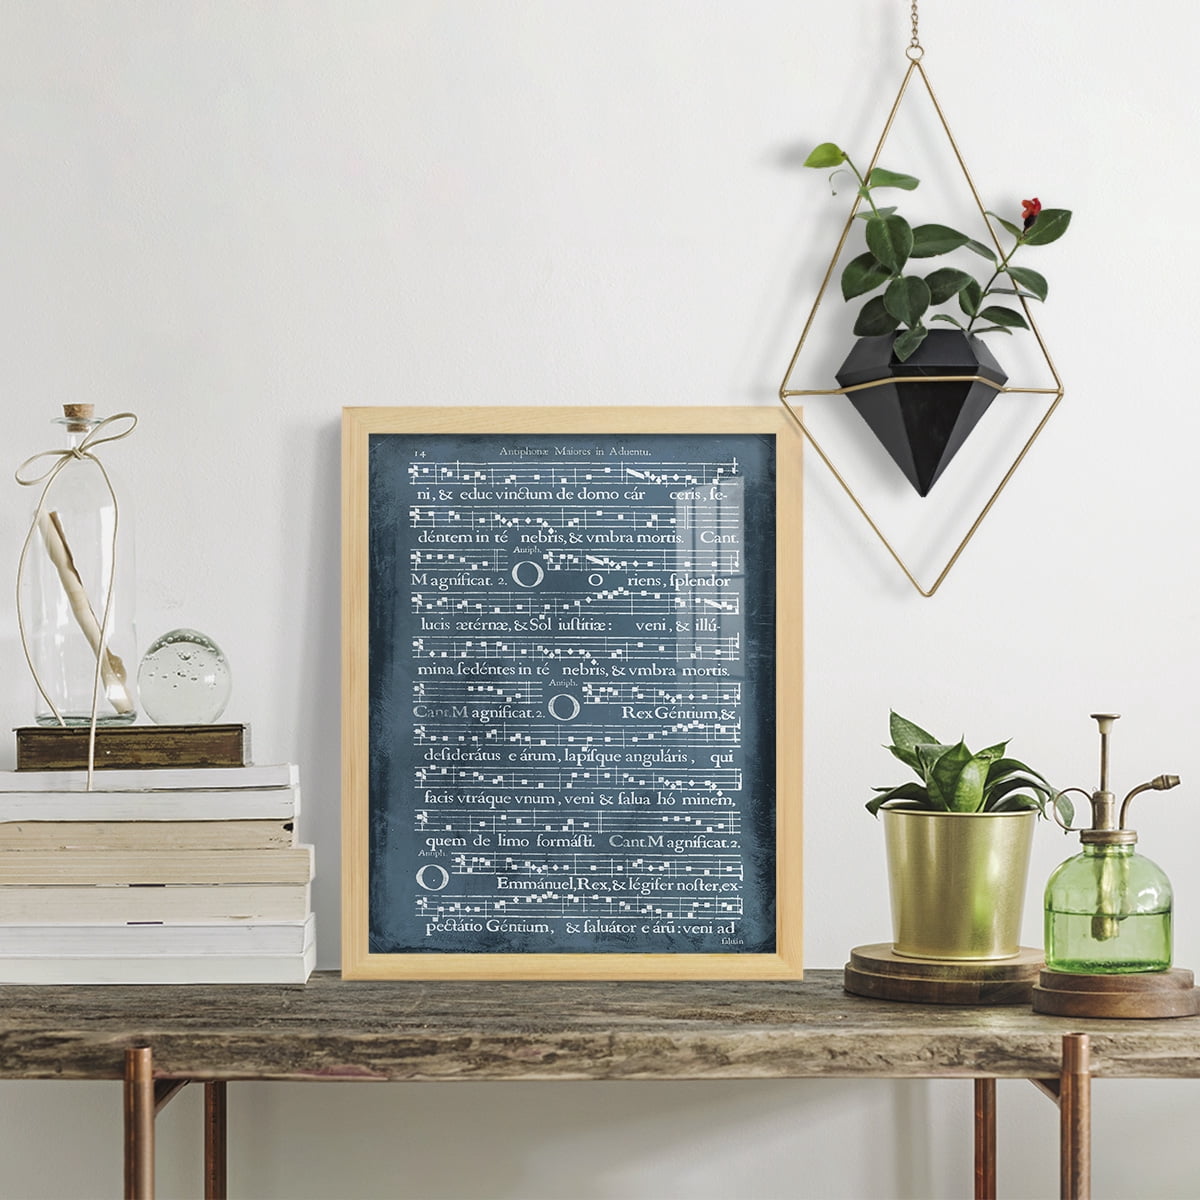 14 Antiphonæ Maiores in Aduentu.
ni, & educ vinctum de domo cár ceris, ſe-
déntem in té nebris, & vmbra mortis. Cant.
Antiph.
Magníficat. 2. O O riens, ſplendor
lucis ætérnæ, & Sol iuſtítiæ: veni, & illú-
mina ſedéntes in té nebris, & vmbra mortis.
Antiph.
Cant. Magníficat. 2. O Rex Géntium, &
deſiderátus eárum, lapíſque anguláris, qui
facis vtráque vnum, veni & ſalua hó minem,
quem de limo formáſti. Cant. Magníficat. 2.
Antiph.
O Emmánuel, Rex, & légifer noſter, ex-
pectátio Géntium, & ſaluátor eárũ: veni ad